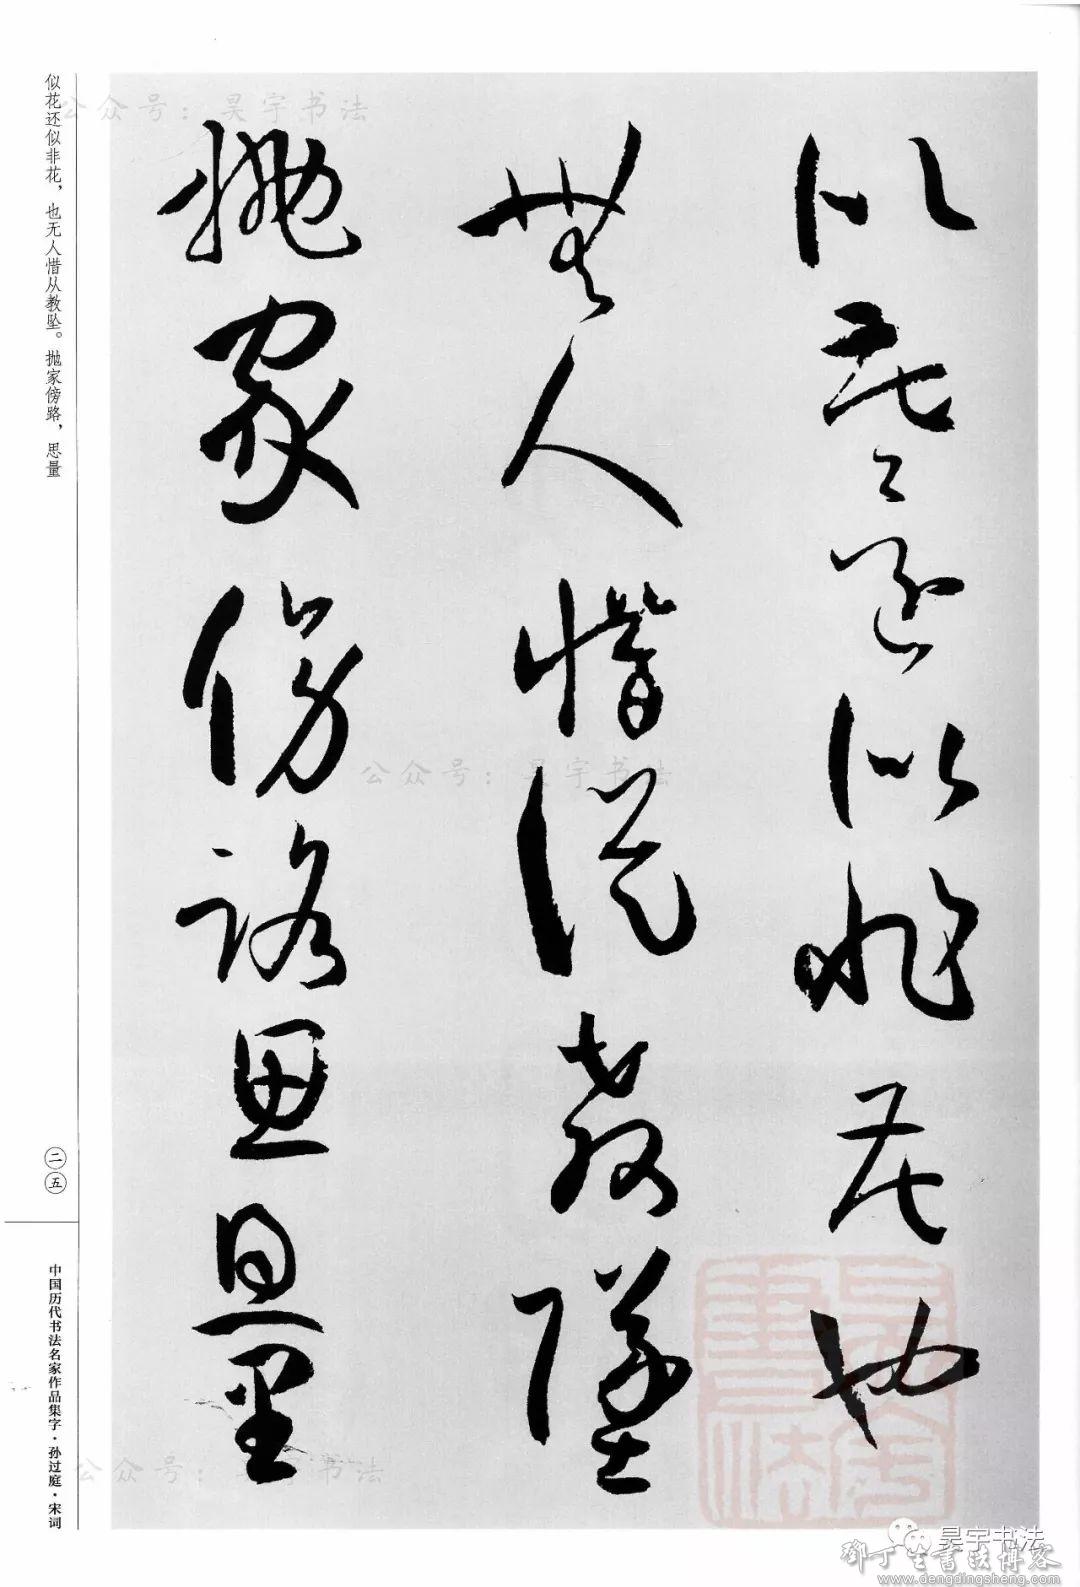 似花還似非花也
無人惜從教墜
拋家傍路思量
似花还似非花，也无人惜从教坠。抛家傍路，思量
二五
中国历代书法名家作品集字·孙过庭·宋词
公众号：昊宇书法
公众号：昊宇书法
公众号：昊宇书法
昊宇书法
邓丁生书法博客
www.dengdingsheng.com